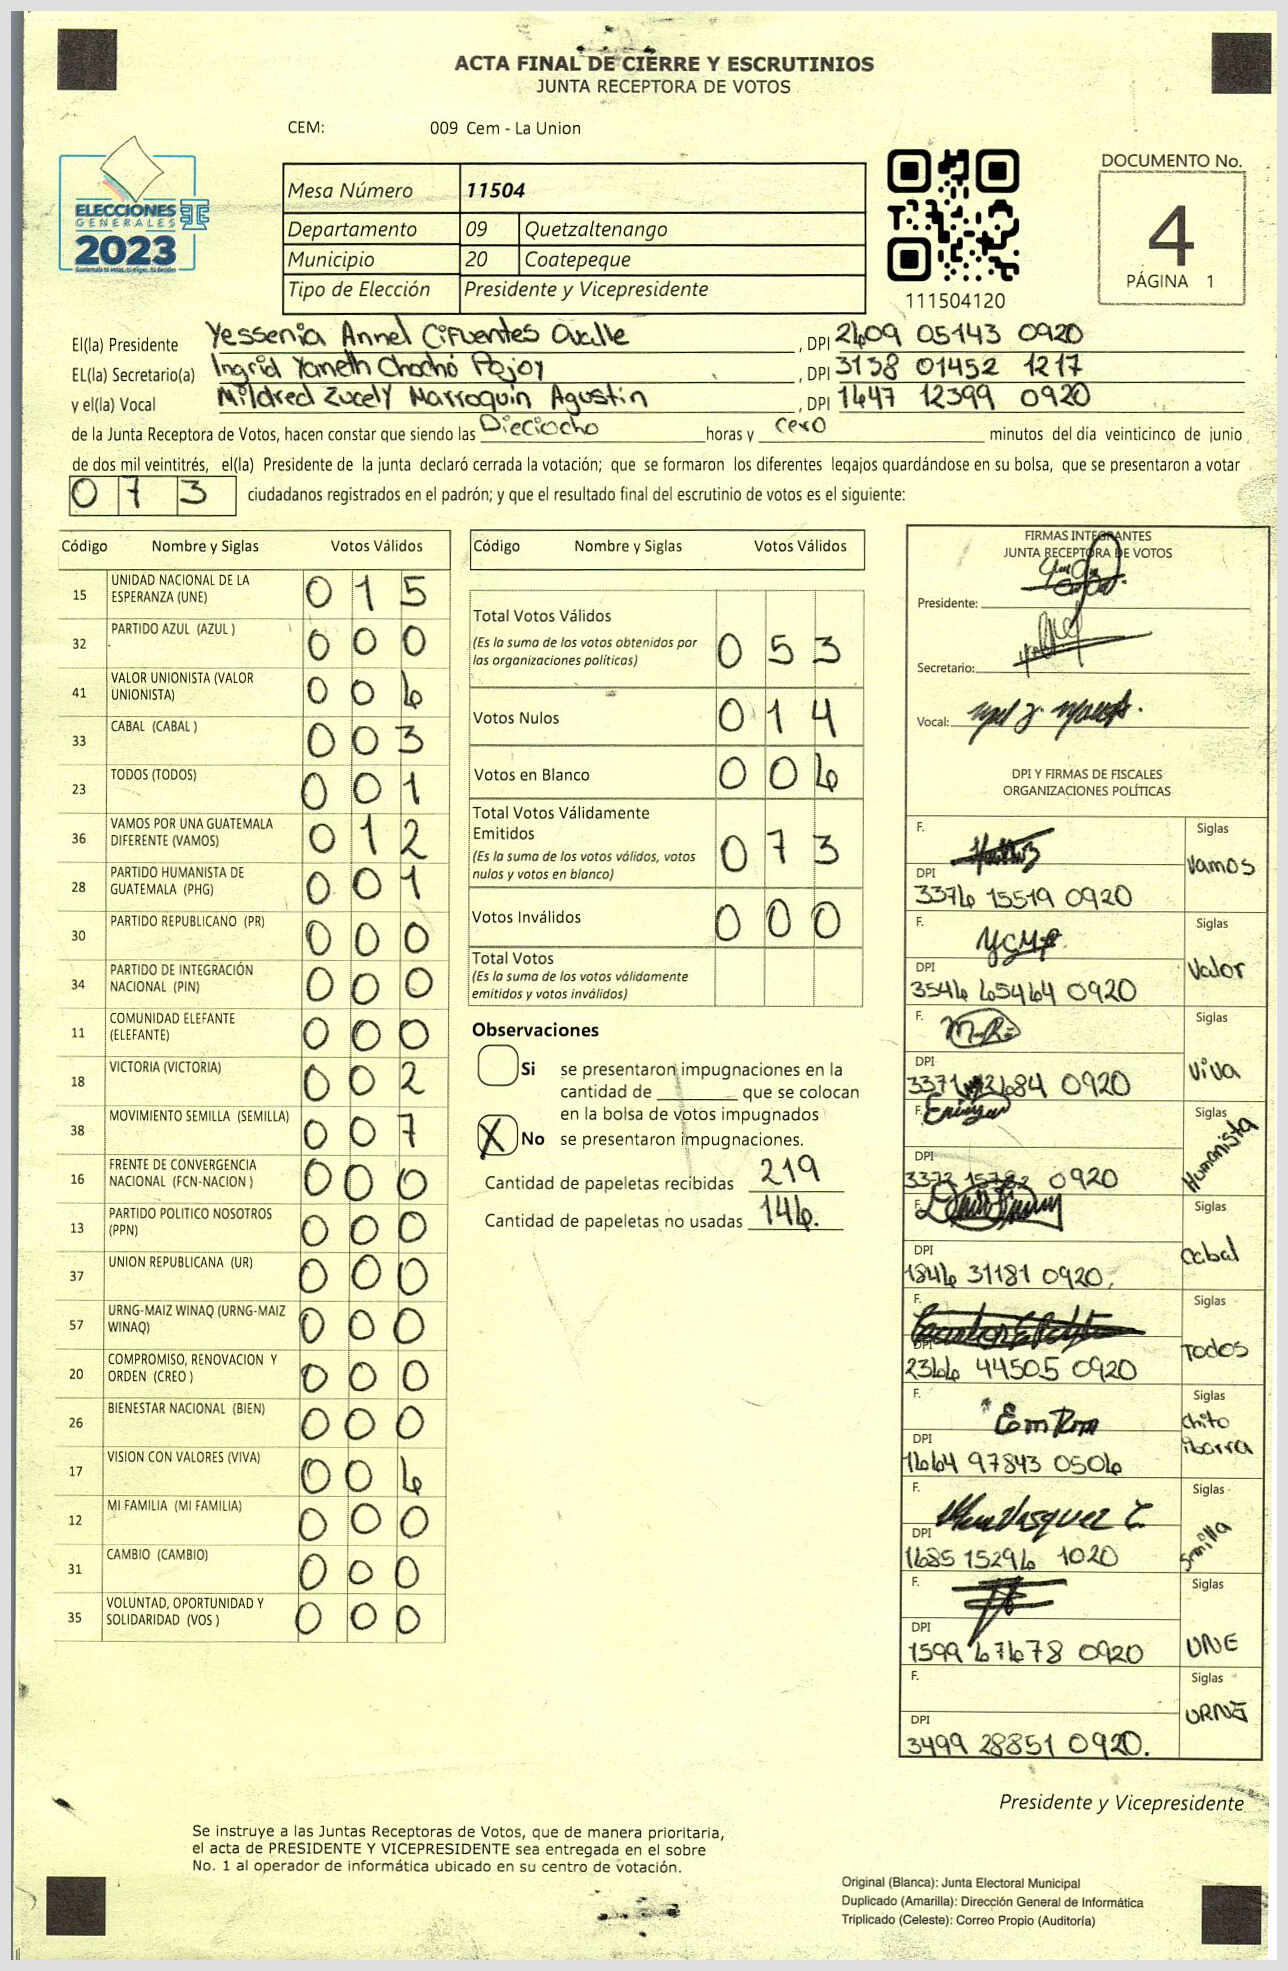 ACTA FINAL DE CIERRE Y ESCRUTINIOS
JUNTA RECEPTORA DE VOTOS
CEM: 009 Cem - La Union
ELECCIONES
GENERALES
2023
Mesa Número 11504
Departamento 09 Quetzaltenango
Municipio 20 Coatepeque
Tipo de Elección Presidente y Vicepresidente
111504120
DOCUMENTO No.
4
PÁGINA 1
El(la) Presidente Yessenia Annel Cifuentes Ovalle , DPI 2409 05143 0920
EL(la) Secretario(a) Ingrid Yameth Chochó Pojoy , DPI 3138 01452 1217
y el(la) Vocal Mildred Zucely Marroquin Agustin , DPI 1647 12399 0920
de la Junta Receptora de Votos, hacen constar que siendo las Dieciocho horas y cero minutos del día veinticinco de junio
de dos mil veintitrés, el(la) Presidente de la junta declaró cerrada la votación; que se formaron los diferentes legajos guardándose en su bolsa, que se presentaron a votar
073 ciudadanos registrados en el padrón; y que el resultado final del escrutinio de votos es el siguiente:
Código Nombre y Siglas Votos Válidos
15 UNIDAD NACIONAL DE LA ESPERANZA (UNE) 0 1 5
32 PARTIDO AZUL (AZUL ) 0 0 0
41 VALOR UNIONISTA (VALOR UNIONISTA) 0 0 6
33 CABAL (CABAL ) 0 0 3
23 TODOS (TODOS) 0 0 1
36 VAMOS POR UNA GUATEMALA DIFERENTE (VAMOS) 0 1 2
28 PARTIDO HUMANISTA DE GUATEMALA (PHG) 0 0 1
30 PARTIDO REPUBLICANO (PR) 0 0 0
34 PARTIDO DE INTEGRACIÓN NACIONAL (PIN) 0 0 0
11 COMUNIDAD ELEFANTE (ELEFANTE) 0 0 0
18 VICTORIA (VICTORIA) 0 0 2
38 MOVIMIENTO SEMILLA (SEMILLA) 0 0 7
16 FRENTE DE CONVERGENCIA NACIONAL (FCN-NACION ) 0 0 0
13 PARTIDO POLITICO NOSOTROS (PPN) 0 0 0
37 UNION REPUBLICANA (UR) 0 0 0
57 URNG-MAIZ WINAQ (URNG-MAIZ WINAQ) 0 0 0
20 COMPROMISO, RENOVACION Y ORDEN (CREO ) 0 0 0
26 BIENESTAR NACIONAL (BIEN) 0 0 0
17 VISION CON VALORES (VIVA) 0 0 6
12 MI FAMILIA (MI FAMILIA) 0 0 0
31 CAMBIO (CAMBIO) 0 0 0
35 VOLUNTAD, OPORTUNIDAD Y SOLIDARIDAD (VOS ) 0 0 0
Código Nombre y Siglas Votos Válidos
Total Votos Válidos
(Es la suma de los votos obtenidos por las organizaciones políticas) 0 5 3
Votos Nulos 0 1 4
Votos en Blanco 0 0 6
Total Votos Válidamente Emitidos
(Es la suma de los votos válidos, votos nulos y votos en blanco) 0 7 3
Votos Inválidos 0 0 0
Total Votos
(Es la suma de los votos válidamente emitidos y votos inválidos)
Observaciones
Si se presentaron impugnaciones en la
cantidad de ________ que se colocan
en la bolsa de votos impugnados
X No se presentaron impugnaciones.
Cantidad de papeletas recibidas 219
Cantidad de papeletas no usadas 146.
FIRMAS INTEGRANTES
JUNTA RECEPTORA DE VOTOS
Presidente:
Secretario:
Vocal:
DPI Y FIRMAS DE FISCALES
ORGANIZACIONES POLÍTICAS
F. Siglas
Vamos
DPI
3376 15519 0920
F. Siglas
Valor
DPI
3546 65464 0920
F. Siglas
Viva
DPI
0920
F. Siglas
Humanista
DPI
3372 0920
F. Siglas
Cabal
DPI
1846 31181 0920.
F. Siglas
Todos
DPI
2366 44505 0920
F. Siglas
Chito
ibarra
DPI
1664 97843 0506
F. Siglas
Smilla
DPI
1685 15296 1020
F. Siglas
UNE
DPI
1599 67678 0920
F. Siglas
URNG
DPI
3499 28851 0920.
Presidente y Vicepresidente
Se instruye a las Juntas Receptoras de Votos, que de manera prioritaria,
el acta de PRESIDENTE Y VICEPRESIDENTE sea entregada en el sobre
No. 1 al operador de informática ubicado en su centro de votación.
Original (Blanca): Junta Electoral Municipal
Duplicado (Amarilla): Dirección General de Informática
Triplicado (Celeste): Correo Propio (Auditoría)